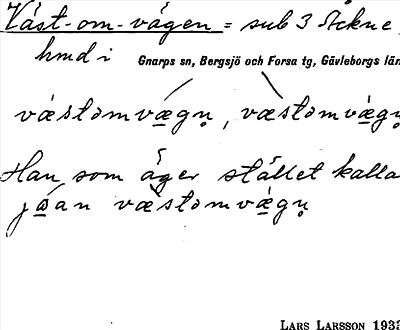 Väst-om-vägen = sub 3 Åckne
hmd i Gnarps sn, Bergsjö och Forsa tg, Gävleborgs län
västomvægn̥, væstomvægn̥
Han som äger stället kalla
jɷ́an væstomvægn̥
LARS LARSSON 1933